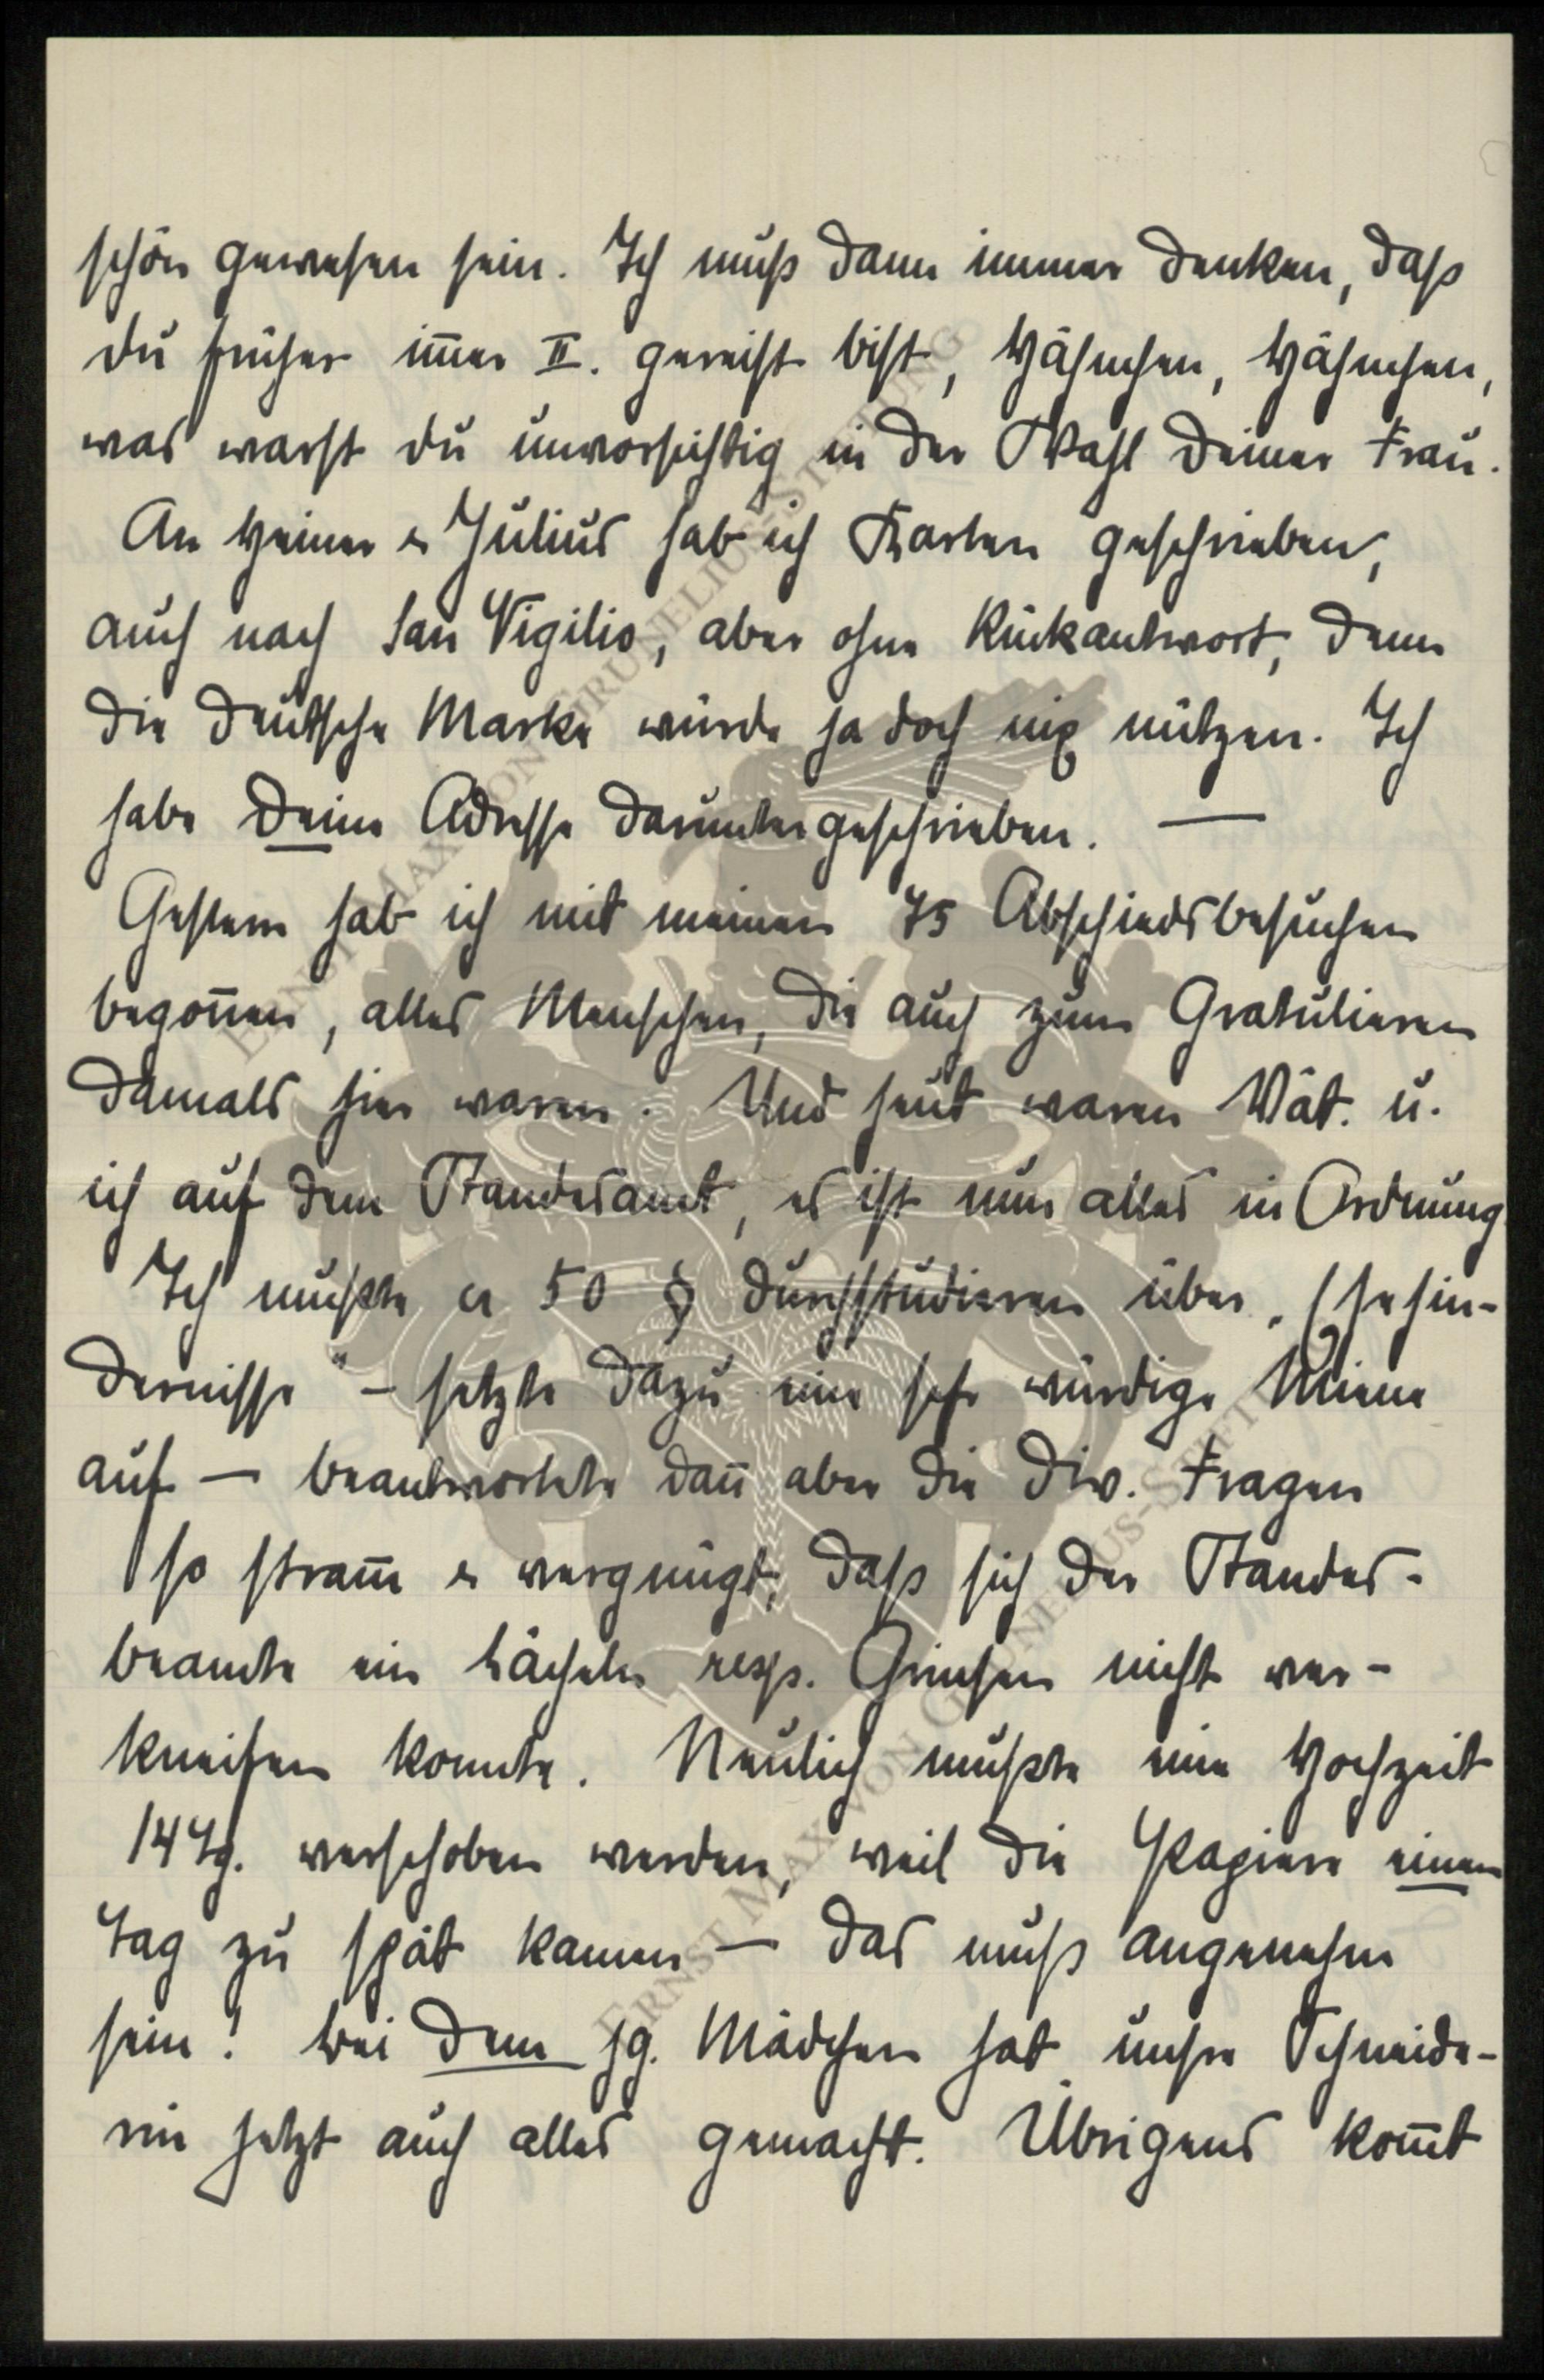 schön gewesen sein. Ich muß dann immer denken, daß
du früher im̅er II. gereist bist, Hähnchen, Hähnchen,
was warst du unvorsichtig in der Wahl deiner Frau.
An Heiner & Julius hab ich Karten geschrieben,
auch nach San Vigilio, aber ohne Rückantwort, denn
die deutsche Marke würde ja doch nix nützen. Ich
habe deine Adresse daruntergeschrieben. —
Gestern hab ich mit meinen 75 Abschiedsbesuchen
begon̅en, alles Menschen, die auch zum Gratulieren
damals hier waren. Und heut waren Vät. u.
ich auf dem Standesamt, es ist nun alles in Ordnung
Ich mußte ca 50 § durchstudieren über „Ehehin-
dernisse" – setzte dazu eine sehr würdige Miene
auf — beantwortete dan̅ aber die div. Fragen
so stram̅ & vergnügt, daß sich der Standes-
beamte ein Lächeln resp. Grinsen nicht ver-
kneifen konnte. Neulich mußte eine Hochzeit
14 Tg. verschoben werden, weil die Papiere einen
Tag zu spät kamen — das muß angenehm
sein! Bei dem jg. Mädchen hat unsre Schneide-
rin jetzt auch alles gemacht. Übrigens kom̅t
ERNST MAX VON GRUNELIUS-STIFTUNG
ERNST MAX VON GRUNELIUS-STIFTUNG